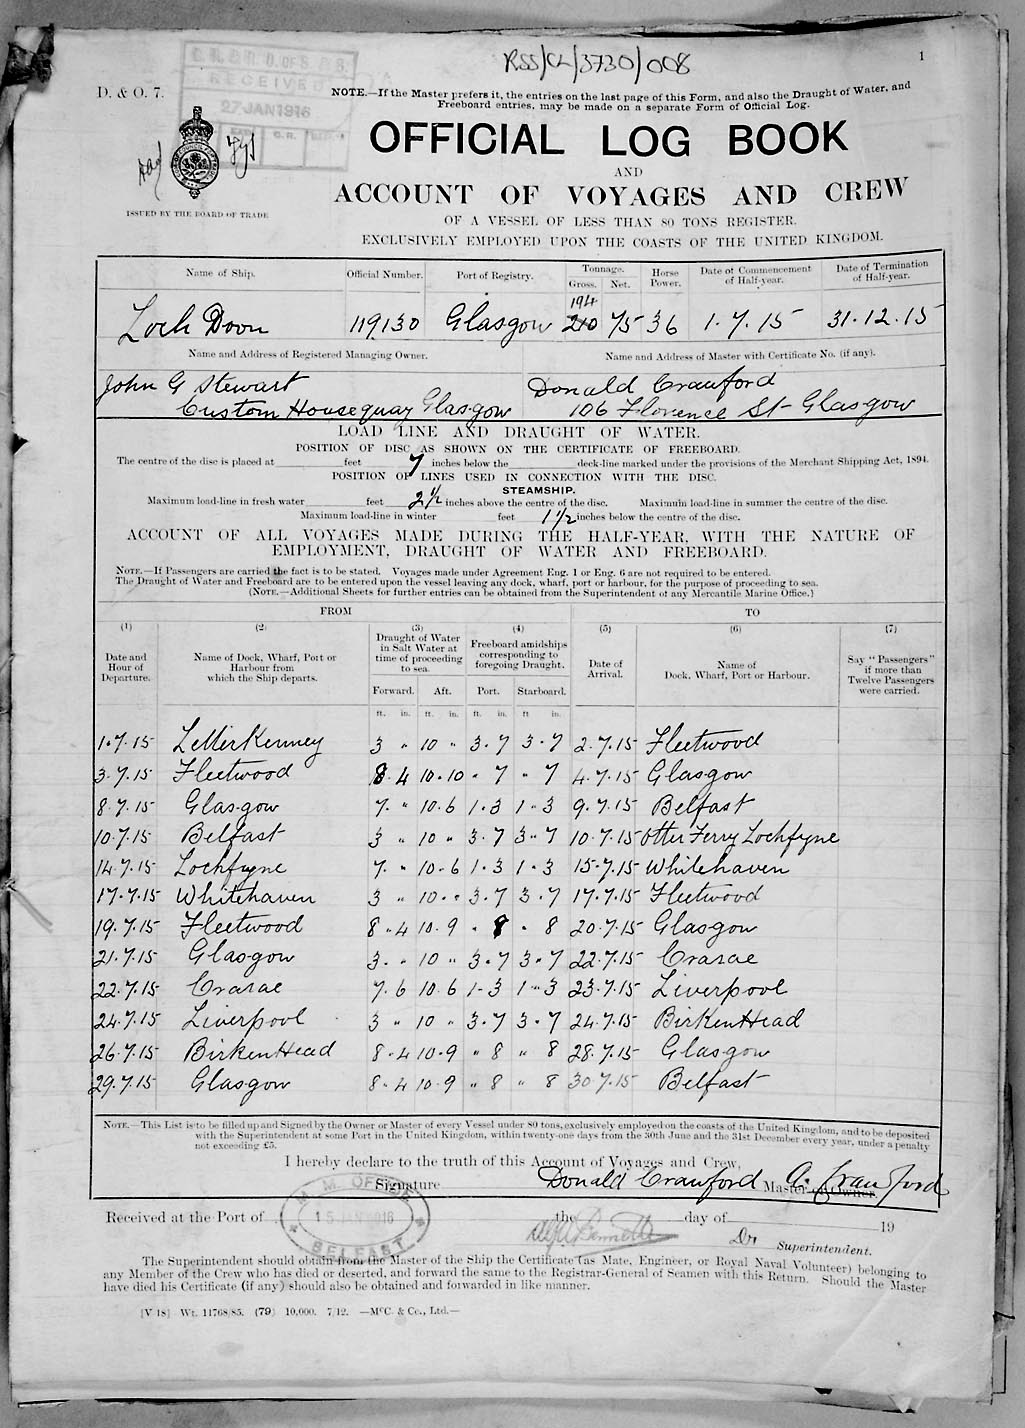 RSS/CL/3730/008
1
D. & O. 7.
RECEIVED
27 JAN 1916
NOTE.—If the Master prefers it, the entries on the last page of this Form, and also the Draught of Water, and
Freeboard entries, may be made on a separate Form of Official Log.
OFFICIAL LOG BOOK
AND
ACCOUNT OF VOYAGES AND CREW
ISSUED BY THE BOARD OF TRADE
OF A VESSEL OF LESS THAN 80 TONS REGISTER.
EXCLUSIVELY EMPLOYED UPON THE COASTS OF THE UNITED KINGDOM.
Name of Ship. Official Number. Port of Registry. Tonnage. Gross. Net. Horse Power. Date of Commencement of Half-year. Date of Termination of Half-year.
194
Loch Doon 119130 Glasgow 210 75 36 1.7.15 31.12.15
Name and Address of Registered Managing Owner. Name and Address of Master with Certificate No. (if any).
John G Stewart Donald Crawford
Custom House quay Glasgow 106 Florence St Glasgow
LOAD LINE AND DRAUGHT OF WATER.
POSITION OF DISC AS SHOWN ON THE CERTIFICATE OF FREEBOARD.
The centre of the disc is placed at feet 7 inches below the deck-line marked under the provisions of the Merchant Shipping Act, 1894.
POSITION OF LINES USED IN CONNECTION WITH THE DISC.
STEAMSHIP.
Maximum load-line in fresh water feet 2½ inches above the centre of the disc. Maximum load-line in summer the centre of the disc.
Maximum load-line in winter feet 1½ inches below the centre of the disc.
ACCOUNT OF ALL VOYAGES MADE DURING THE HALF-YEAR, WITH THE NATURE OF
EMPLOYMENT, DRAUGHT OF WATER AND FREEBOARD.
NOTE.—If Passengers are carried the fact is to be stated. Voyages made under Agreement Eng. 1 or Eng. 6 are not required to be entered.
The Draught of Water and Freeboard are to be entered upon the vessel leaving any dock, wharf, port or harbour, for the purpose of proceeding to sea.
(NOTE.—Additional Sheets for further entries can be obtained from the Superintendent of any Mercantile Marine Office.)
FROM TO
(1) (2) (3) (4) (5) (6) (7)
Date and Hour of Departure. Name of Dock, Wharf, Port or Harbour from which the Ship departs. Draught of Water in Salt Water at time of proceeding to sea. Freeboard amidships corresponding to foregoing Draught. Date of Arrival. Name of Dock, Wharf, Port or Harbour. Say "Passengers" if more than Twelve Passengers were carried.
Forward. Aft. Port. Starboard.
ft. in. ft. in. ft. in. ft in.
1.7.15 Letterkenney 3 " 10 " 3.7 3.7 2.7.15 Fleetwood
3.7.15 Fleetwood 8.4 10.10 " 7 " 7 4.7.15 Glasgow
8.7.15 Glasgow 7. " 10.6 1.3 1.3 9.7.15 Belfast
10.7.15 Belfast 3 " 10 " 3.7 3.7 10.7.15 Otter Ferry Lochfyne
14.7.15 Lochfyne 7. " 10.6 1.3 1.3 15.7.15 Whitehaven
17.7.15 Whitehaven 3 " 10 " 3.7 3.7 17.7.15 Fleetwood
19.7.15 Fleetwood 8.4 10.9 " 8 " 8 20.7.15 Glasgow
21.7.15 Glasgow 3. " 10 " 3.7 3.7 22.7.15 Crarae
22.7.15 Crarae 7.6 10.6 1.3 1.3 23.7.15 Liverpool
24.7.15 Liverpool 3 " 10 " 3.7 3.7 24.7.15 BirkenHead
26.7.15 BirkenHead 8.4 10.9 " 8 " 8 28.7.15 Glasgow
29.7.15 Glasgow 8.4 10.9 " 8 " 8 30.7.15 Belfast
NOTE.—This List is to be filled up and Signed by the Owner or Master of every Vessel under 80 tons, exclusively employed on the coasts of the United Kingdom, and to be deposited
with the Superintendent at some Port in the United Kingdom, within twenty-one days from the 30th June and the 31st December every year, under a penalty
not exceeding £5.
I hereby declare to the truth of this Account of Voyages and Crew,
Signature Donald Crawford Master or Owner. Crawford
M. M. OFFICE
15 JAN 1916
BELFAST
Received at the Port of the day of 19
Superintendent.
The Superintendent should obtain from the Master of the Ship the Certificate (as Mate, Engineer, or Royal Naval Volunteer) belonging to
any Member of the Crew who has died or deserted, and forward the same to the Registrar-General of Seamen with this Return. Should the Master
have died his Certificate (if any) should also be obtained and forwarded in like manner.
[V 18] Wt. 11768/85. (79) 10,000. 7/12. —McC. & Co., Ltd.—